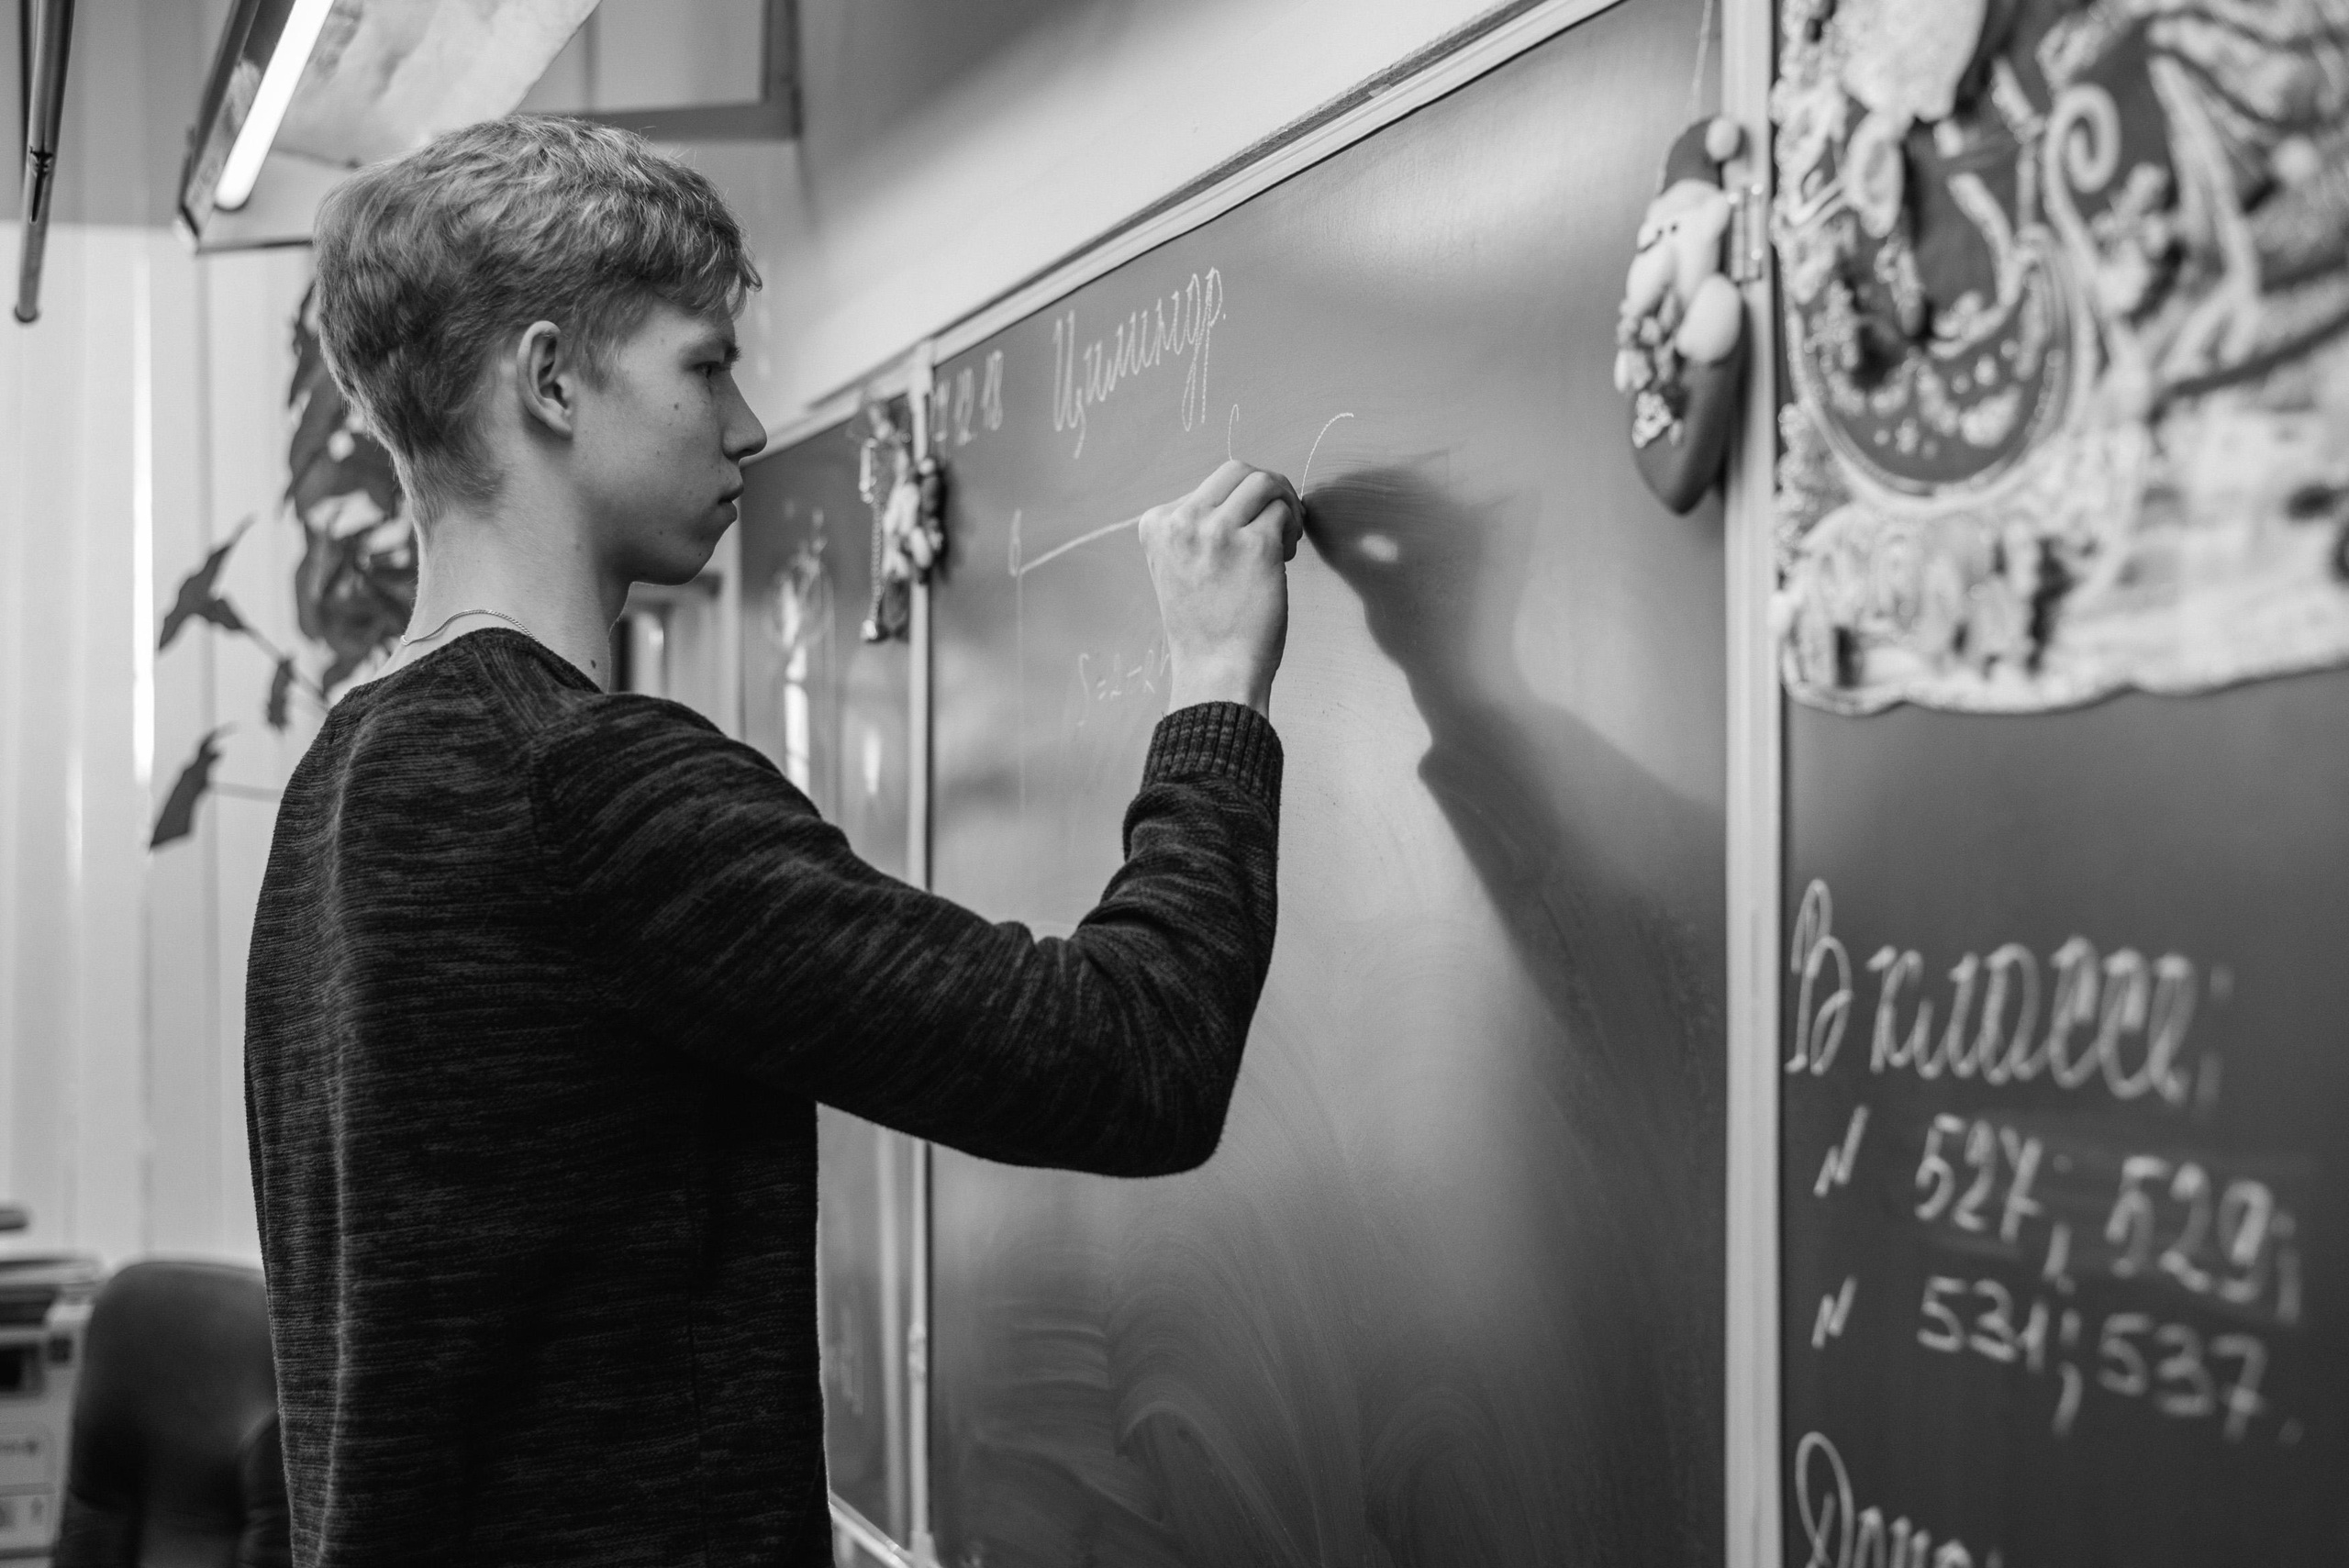 12.12.18
Цилиндр.
В классе:
N 527; 529;
N 531; 537.